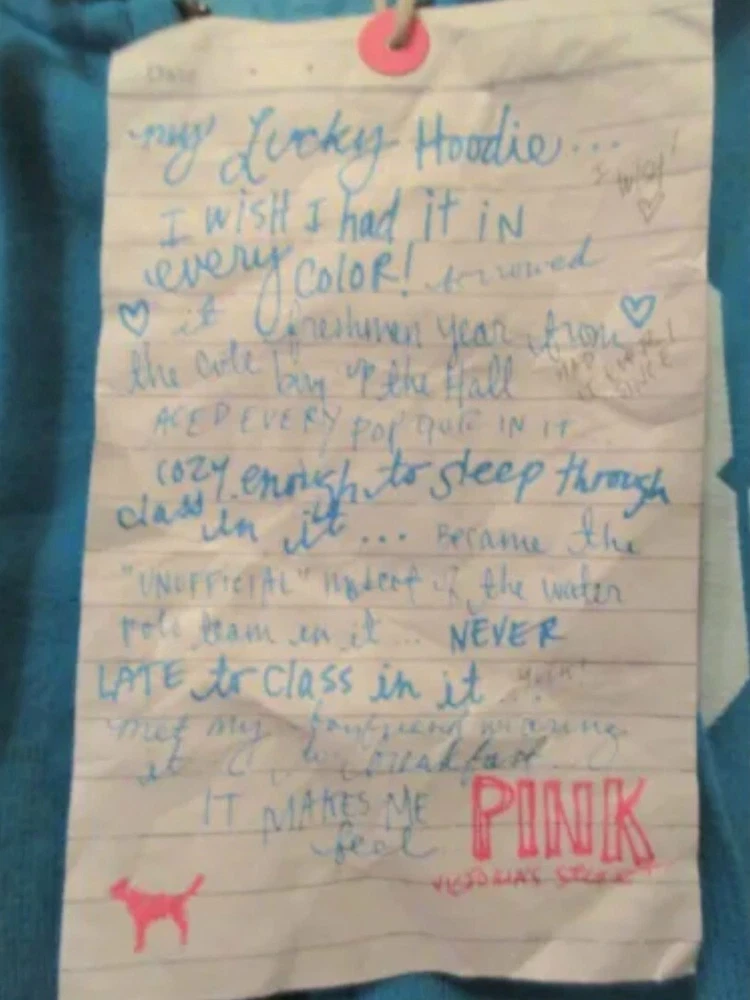 my Lucky Hoodie...
I WISH I had it iN
every COLOR! borrowed
it freshmen year from
the cute boy up the Hall
ACED EVERY POP QUIZ IN IT
cozy enough to sleep through
class in it... Became the
"UNOFFICIAL" mascot of the water
polo team in it... NEVER
LATE to class in it
met my boyfriend wearing
it to breakfast...
IT MAKES ME
feel PINK
VICTORIA'S SECRET
I WISH!